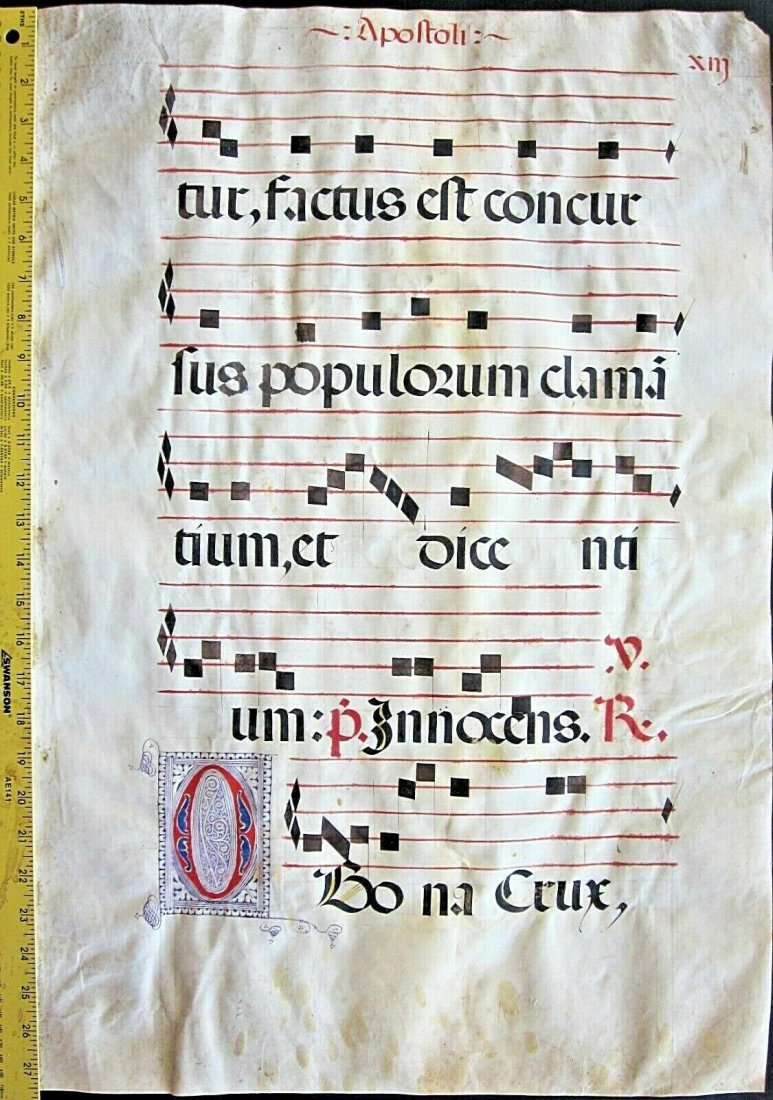 ~:Apostoli:~
xiij
tur, factus est concur
sus populorum clamā
tium, et dice nti
V.
um: p. Innocens. R.
O Bo na Crux,
SWANSON
AE141